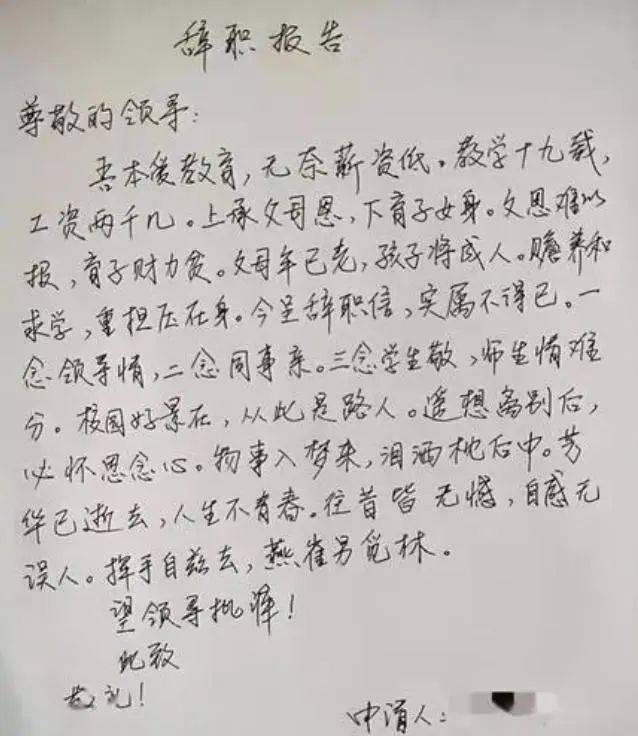 辞职报告
尊敬的领导:
吾本爱教育,无奈薪资低。教学十九载,
工资两千几。上承父母恩,下育子女身。父恩难以
报,育子财力贫。父母年已老,孩子将成人。赡养和
求学,重担压在身。今呈辞职信,实属不得已。一
念领导情,二念同事亲。三念学生敬,师生情难
分。校园好景在,从此是路人。遥想离别后,
必怀思念心。物事入梦来,泪洒枕巾中。芳
华已逝去,人生不有春。往昔皆无憾,自感无
误人。挥手自兹去,燕雀另觅林。
望领导批准!
此致
敬礼!
申请人: